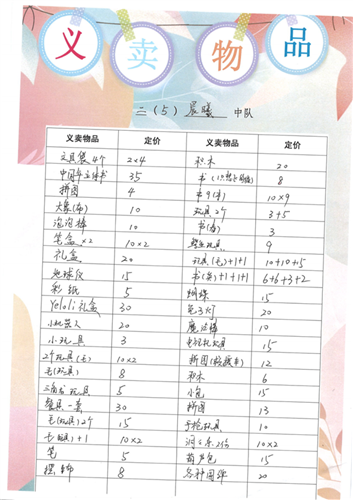 义卖物品
二（5）晨曦 中队
义卖物品 定价 义卖物品 定价
文具袋4个 2×4 积木 20
中国年立体书 35 书 8
拼图 4 书9(本) 10×9
大象(布) 10 玩具2个 3+5
泡泡棒 10 书(本) 3
笔盒×2 10×2 玩具 9
礼盒 20 玩具(毛)+1+1 10+10+5
地球仪 15 书(本)+1+1+1 6+6+3+2
彩纸 5 蝴蝶 15
Yeloli礼盒 30 灯 20
小机器人 20 魔法棒 10
小玩具 3 玩具 15
2个玩具(毛) 10×2 拼图 12
毛(玩具) 8 积木 6
三角龙玩具 5 小包 15
餐具一套 30 拼图 13
毛(玩具)2个 15 手枪玩具 10
毛(玩具)+1 10×2 10×2
笔 5 葫芦包 15
摆饰 8 各种图强 20